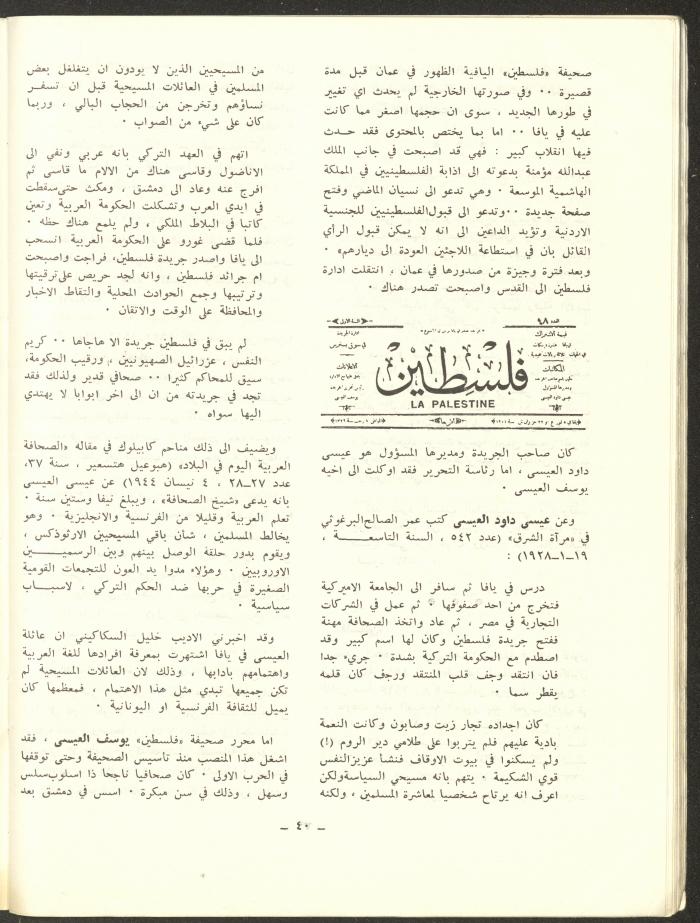 صحيفة «فلسطين» اليافية الظهور في عمان قبل مدة
قصيرة ٠٠ وفي صورتها الخارجية لم يحدث اي تغيير
في طورها الجديد ، سوى ان حجمها اصغر مما كانت
عليه في يافا ٠٠ اما بما يختص بالمحتوى فقد حـدث
فيها انقلاب كبير : فهي قد اصبحت في جانب الملك
عبدالله مؤمنة بدعوته الى اذابة الفلسطينيين في المملكة
الهاشمية الموسعة ٠ وهي تدعو الى نسيان الماضي وفتح
صفحة جديدة ٠٠ وتدعو الى قبول الفلسطينيين للجنسية
الاردنية وتؤيد الداعين الى انه لا يمكن قبول الرأي
القائل بان في استطاعة اللاجئين العودة الى ديارهم» ٠
وبعد فترة وجيزة من صدورها في عمان ، انتقلت ادارة
فلسطين الى القدس واصبحت تصدر هناك ٠
العدد ٦٨
السنة الاولى
قيمة الاشتراك
المكاتبات
فلسطين
LA PALESTINE
كان صاحب الجريدة ومديرها المسؤول هو عيسى
داود العيسى ، اما رئاسة التحرير فقد اوكلت الى اخيه
يوسف العيسى ٠
وعن عيسى داود العيسى كتب عمر الصالح البرغوثي
في «مرآة الشرق» (عدد ٥٤٢ ، السنة التاسعـــــة ،
١٩ــ١ــ١٩٢٨) :
درس في يافا ثم سافر الى الجامعة الاميركية
فتخرج من احد صفوفها ٠ ثم عمل في الشركات
التجارية في مصر ، ثم عاد واتخذ الصحافة مهنة
ففتح جريدة فلسطين وكان لها اسم كبير وقد
اصطدم مع الحكومة التركية بشدة ٠ جريء جدا
فان انتقد وجف قلب المنتقد ورجف كان قلمه
يقطر سما ٠
كان اجداده تجار زيت وصابون وكانت النعمة
بادية عليهم فلم يتربوا على طلامي دير الروم (!)
ولم يسكنوا في بيوت الاوقاف فنشأ عزيز النفس
قوي الشكيمة ٠ يتهم بانه مسيحي السياسة ولكن
اعرف انه يرتاح شخصيا لمعاشرة المسلمين ، ولكنه
من المسيحيين الذين لا يودون ان يتغلغل بعض
المسلمين في العائلات المسيحية قبل ان تسفـر
نساؤهم وتخرجن من الحجاب البالي ، وربما
كان على شيء من الصواب ٠
اتهم في العهد التركي بانه عربي ونفي الى
الاناضول وقاسى هناك من الالام ما قاسى ثم
افرج عنه وعاد الى دمشق ، ومكث حتى سقطت
في ايدي العرب وتشكلت الحكومة العربية وتعين
كاتبا في البلاط الملكي ، ولم يلمع هناك حظه ٠
فلما قضى غورو على الحكومة العربية انسحب
الى يافا واصدر جريدة فلسطين، فراجت واصبحت
ام جرائد فلسطين ، وانه لجد حريص على ترقيتها
وترتيبها وجمع الحوادث المحلية والتقاط الاخبار
والمحافظة على الوقت والاتقان ٠
لم يبق في فلسطين جريدة الا هاجاها ٠٠ كريم
النفس ، عزرائيل الصهيونيين ، ورقيب الحكومة،
سيق للمحاكم كثيرا ٠٠ صحافي قدير ولذلك فقد
تجد في جريدته من ان الى اخر ابوابا لا يهتدي
اليها سواه ٠
ويضيف الى ذلك مناحم كابيلوك في مقاله «الصحافة
العربية اليوم في البلاد» (هبوعيل هتسعير ، سنة ٣٧،
عدد ٢٧ــ٢٨ ، ٤ نيسان ١٩٤٤) عن عيسى العيسى
بانه يدعى «شيخ الصحافة» ، ويبلغ نيفا وستين سنة ٠
تعلم العربية وقليلا من الفرنسية والانجليزية ٠ وهو
يخالط المسلمين ، شأن باقي المسيحيين الارثوذكس ،
ويقوم بدور حلقة الوصل بينهم وبين الرسميـــــين
الاوروبيين ٠ وهؤلاء مدوا يد العون للتجمعات القومية
الصغيرة في حربها ضد الحكم التركي ، لاسبـــاب
سياسية ٠
وقد اخبرني الاديب خليل السكاكيني ان عائلة
العيسى في يافا اشتهرت بمعرفة افرادها للغة العربية
واهتمامهم بادابها ، وذلك لان العائلات المسيحية لم
تكن جميعها تبدي مثل هذا الاهتمام ، فمعظمها كان
يميل للثقافة الفرنسية او اليونانية ٠
اما محرر صحيفة «فلسطين» يوسف العيسى ، فقد
اشغل هذا المنصب منذ تاسيس الصحيفة وحتى توقفها
في الحرب الاولى ٠ كان صحافيا ناجحا ذا اسلوب سلس
وسهل ، وذلك في سن مبكرة ٠ اسس في دمشق بعد
ــ ٤٠ ــ